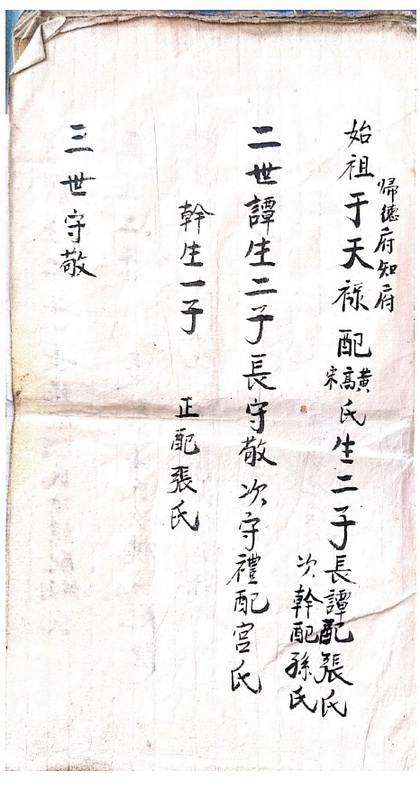 歸德府知府
始祖于天祿配黃高宋氏生二子長譚配張氏
次幹配孫氏
二世譚生二子長守敬次守禮配宮氏
幹生一子 正配張氏
三世守敬